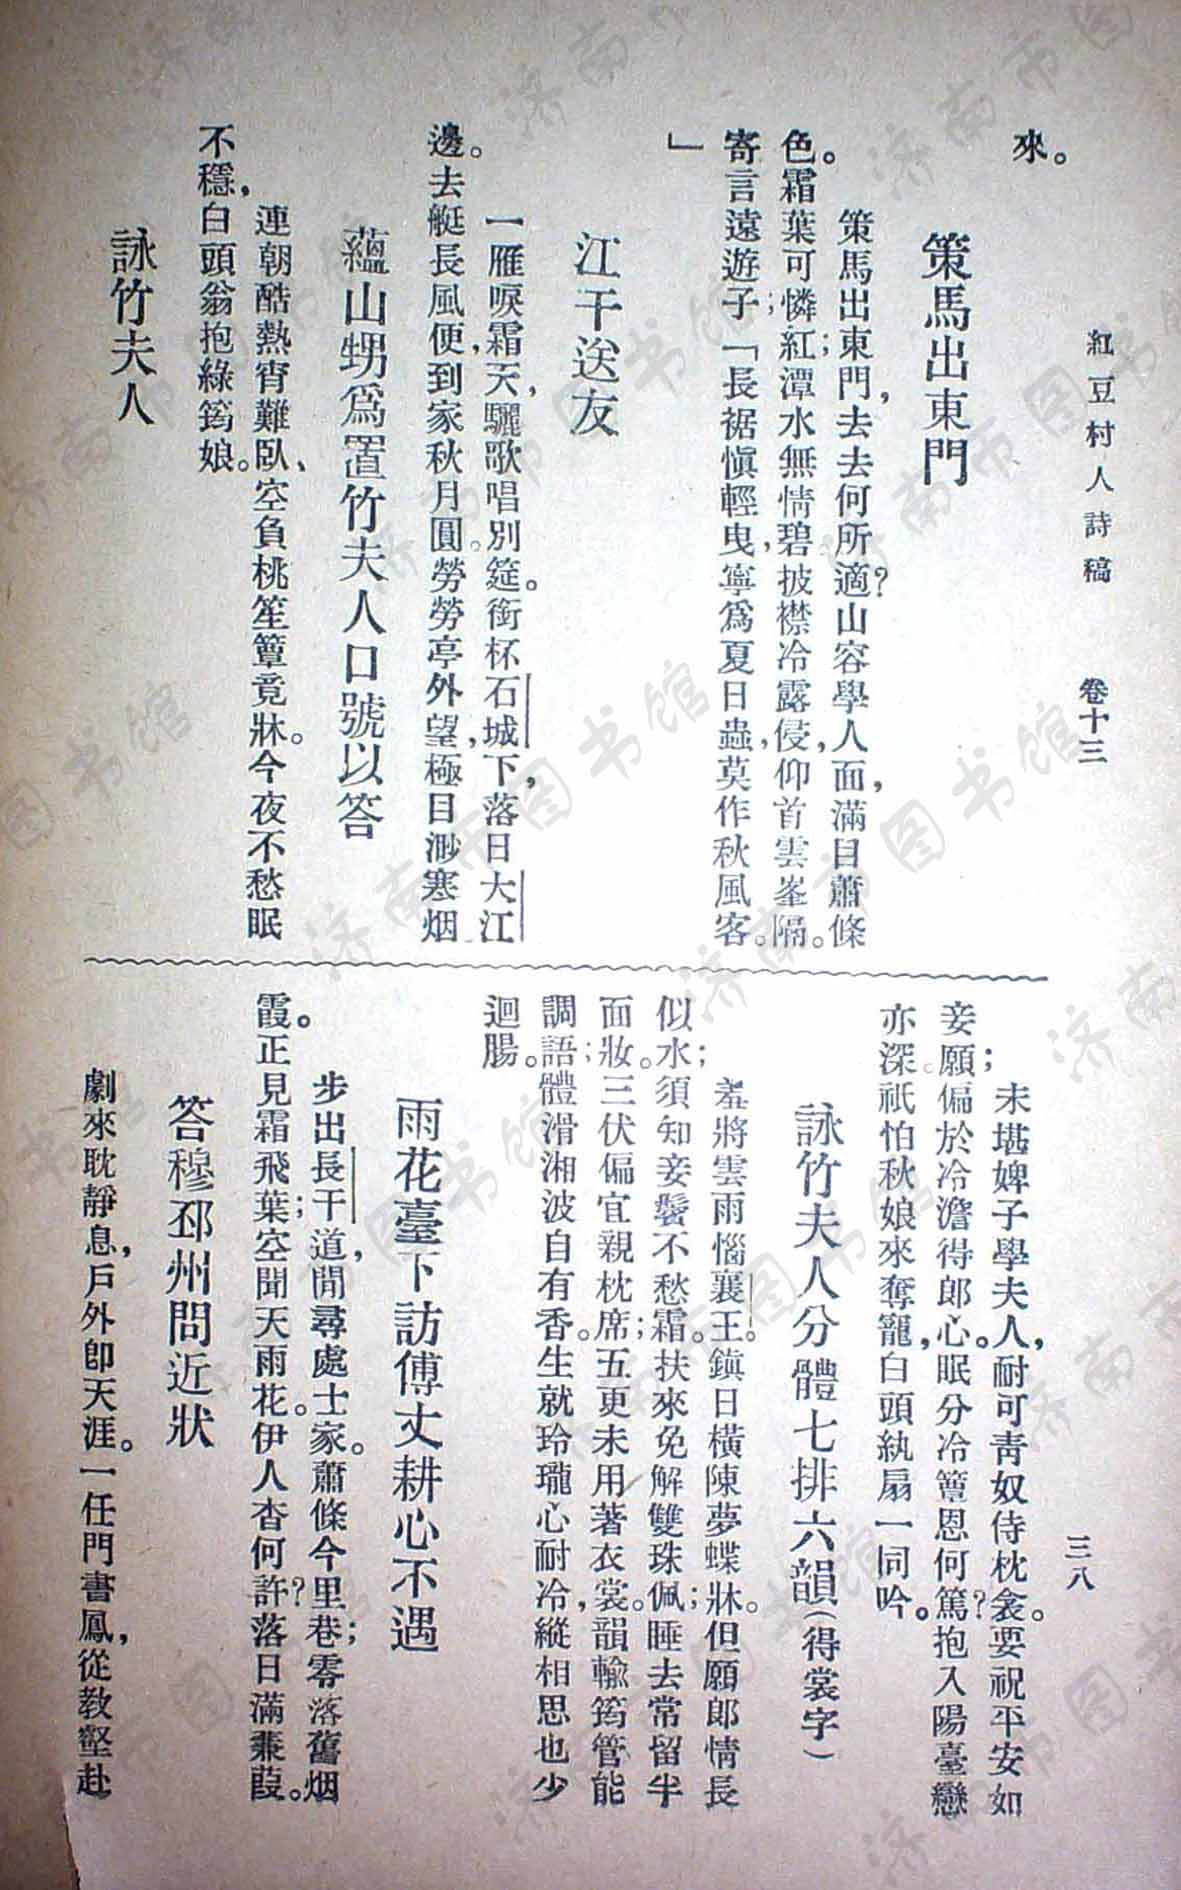 紅豆村人詩稿　卷十三　三八
來。
策馬出東門
策馬出東門，去去何所適？山容學人面，滿目蕭條
色。霜葉可憐紅；潭水無情碧。披襟冷露侵，仰首雲峯隔。
寄言遠遊子：「長裾愼輕曳，寧爲夏日蟲，莫作秋風客。
」
江干送友
一雁唳霜天，驪歌唱別筵。銜杯石城下，落日大江
邊。去艇長風便，到家秋月圓。勞勞亭外望，極目渺寒烟
蘊山甥爲置竹夫人口號以答
連朝酷熱宵難臥、空負桃笙簟竟牀。今夜不愁眠
不穩，白頭翁抱綠筠娘。
詠竹夫人
未堪婢子學夫人，耐可靑奴侍枕衾。要祝平安如
妾願；偏於冷澹得郎心。眠分冷簟恩何篤？抱入陽臺戀
亦深。祇怕秋娘來奪寵，白頭紈扇一同吟。
詠竹夫人分體七排六韻（得裳字）
羞將雲雨惱襄王。鎭日橫陳夢蝶牀。但願郎情長
似水；須知妾鬢不愁霜。扶來免解雙珠佩；睡去常留半
面妝。三伏偏宜親枕席；五更未用著衣裳。韻輸筠管能
調語；體滑湘波自有香。生就玲瓏心耐冷，縱相思也少
迴腸。
雨花臺下訪傅丈耕心不遇
步出長干道，閒尋處士家。蕭條今里巷；零落舊烟
霞。正見霜飛葉；空聞天雨花。伊人杳何許？落日滿蒹葭。
答穆邳州問近狀
劇來耽靜息，戶外卽天涯。一任門書鳳，從教壑赴
济南市图书馆